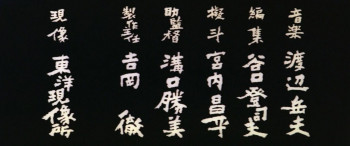 音楽 渡辺岳夫
編集 谷口登司夫
擬斗 宮内昌平
助監督 溝口勝美
製作主任 吉岡徹
現像 東洋現像所